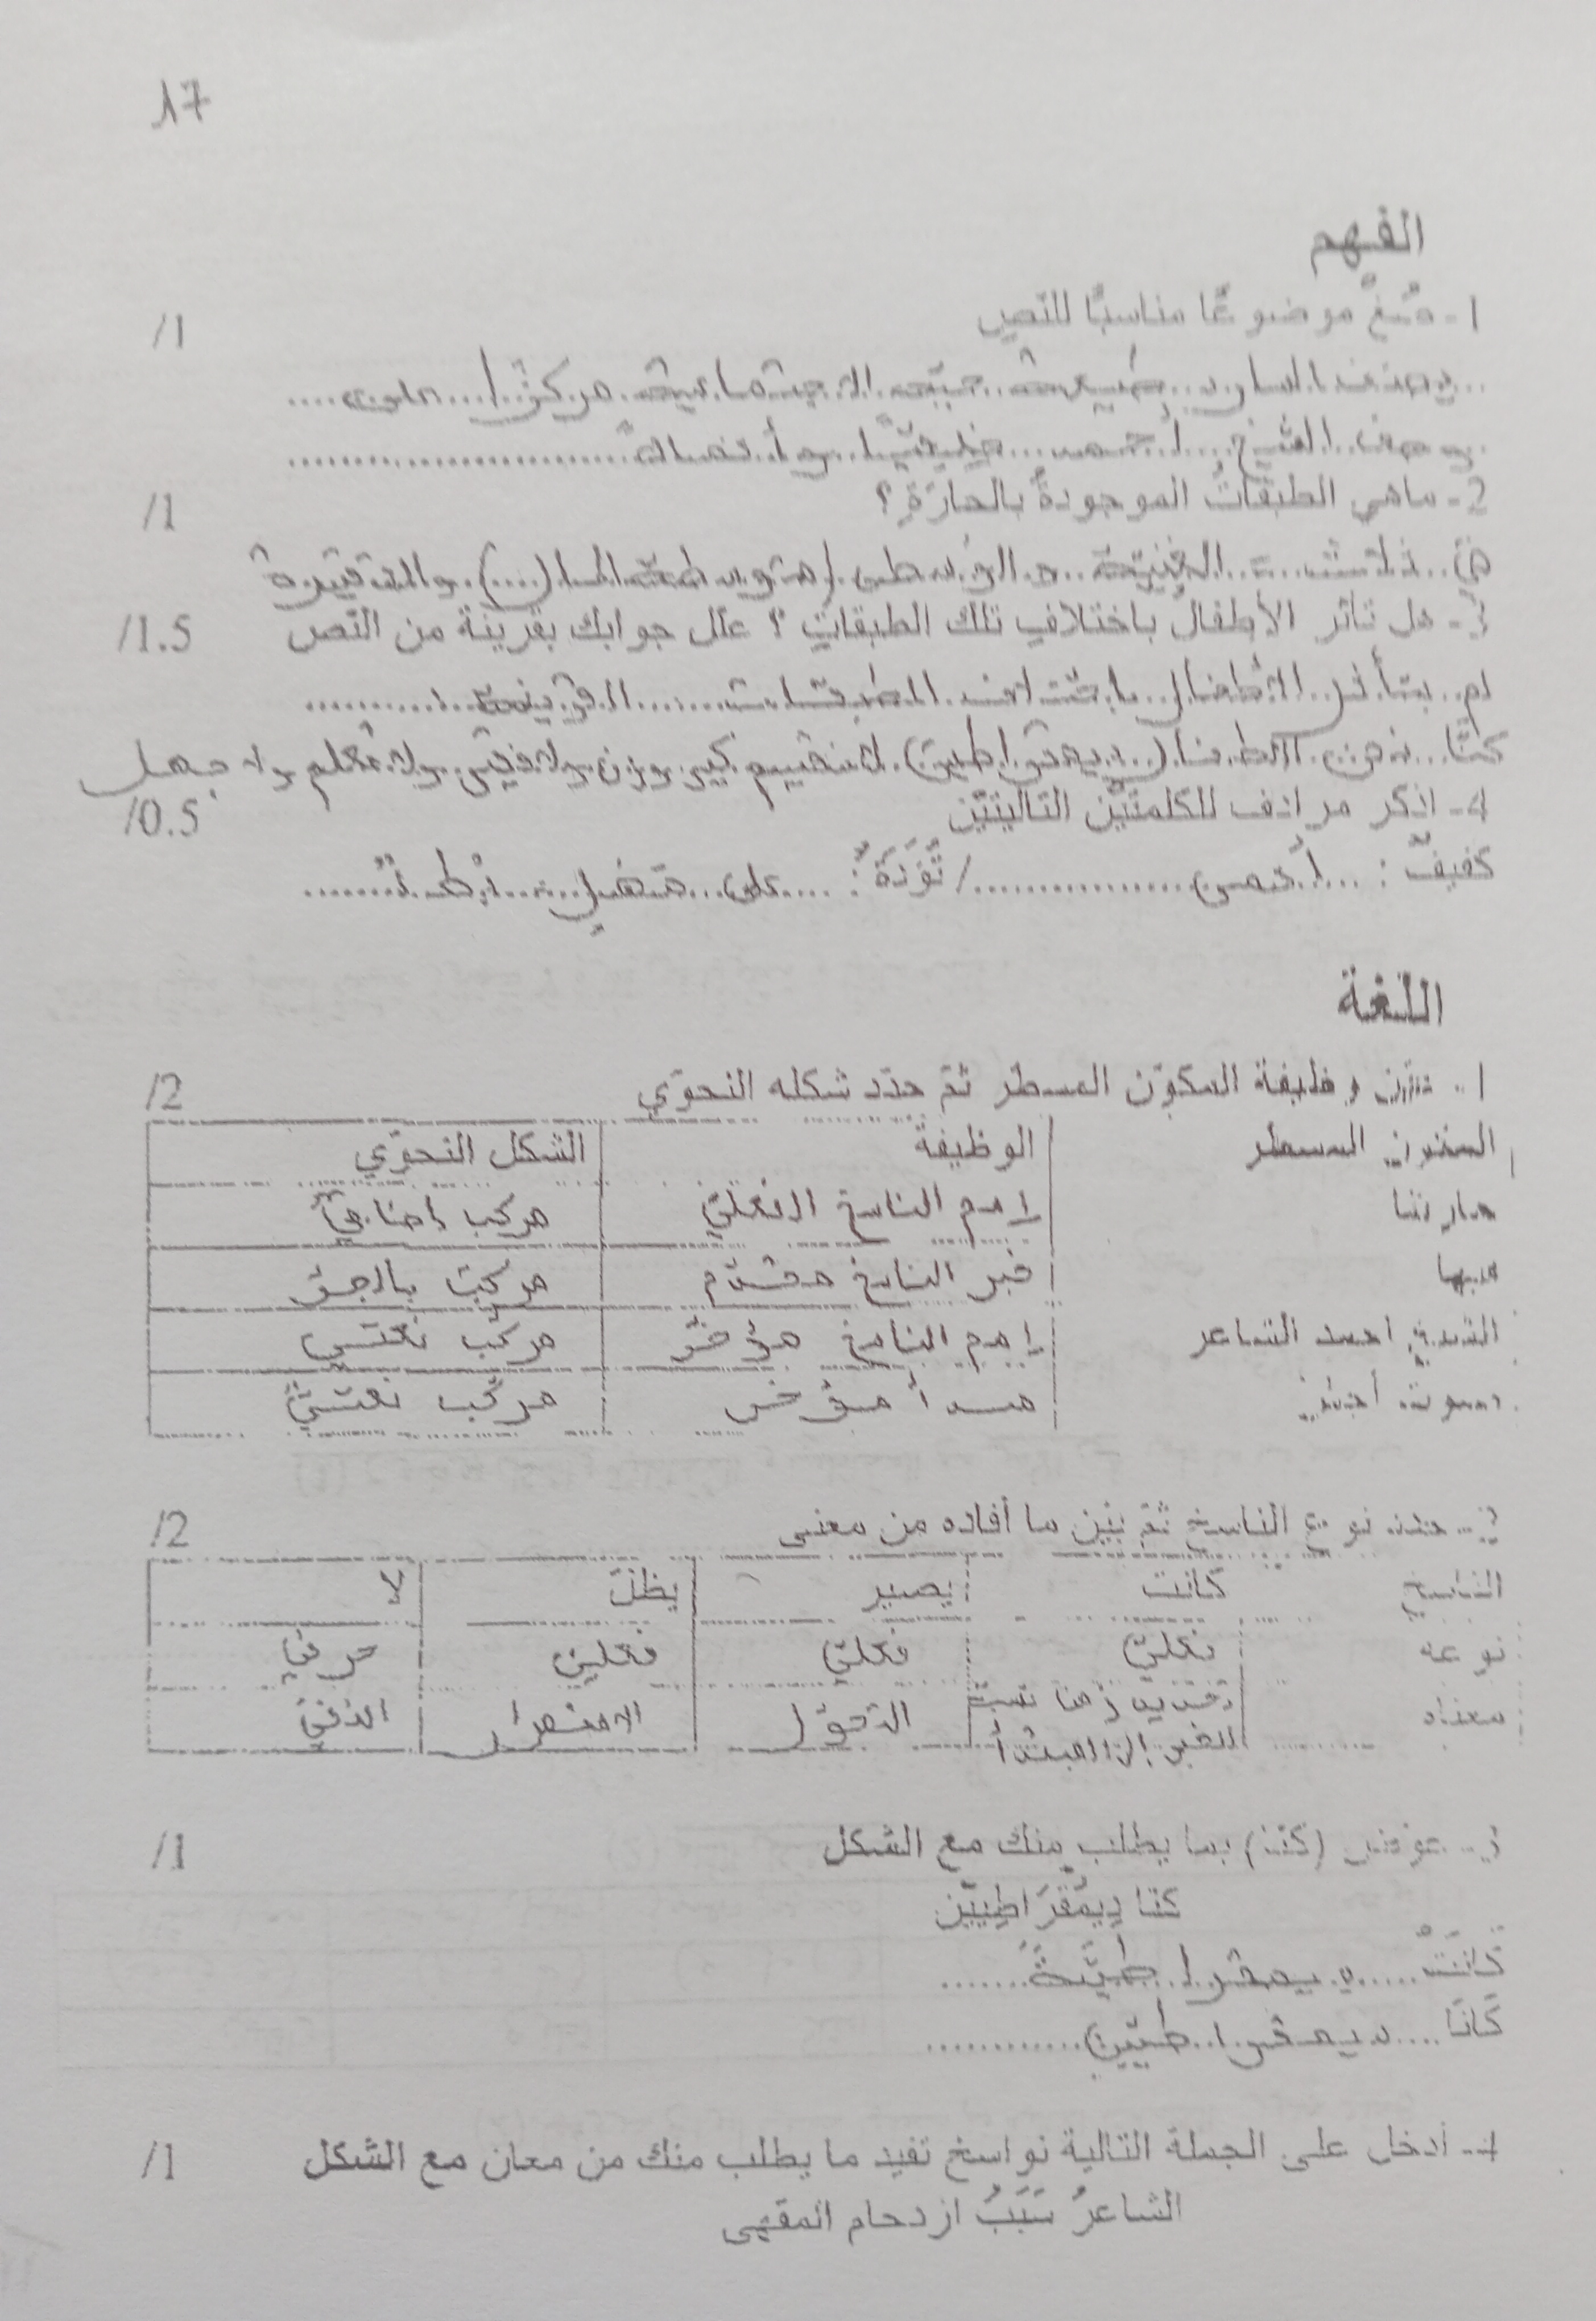 17
الفهم
1- صُغْ موضوعًا مناسبًا للنّصِ
/1
يصف السارد طبيعة حيّه الاجتماعية مركزا على
وصف الشيخ أحمد خلقيّا وأعماله
2- ماهي الطبقاتُ الموجودةُ بالحارَةِ ؟
/1
الغنيّة و الوسطى (متوسطة الحال) والفقيرة
3- هل تأثر الأطفالُ باختلافِ تلك الطبقاتِ ؟ علّل جوابك بقرينة من النّص
/1.5
لم يتأثر الأطفال باختلاف الطبقات القرينة :
كنّا نحن الأطفال (ديمقراطيين) لا نقيم كبير وزن ولا فقر ولا تعلم ولا جهل
4- اذكر مرادف للكلمتيْن التاليتيْن
/0.5
كفيفٌ : أعمى / تُؤَدَةٌ : على مَهَلٍ
اللّغة
1- بيّن وظيفة المكوّن المسطّر ثمّ حدّد شكله النحوّي
/2
المكون المسطر الوظيفة الشكل النحوّي
حارتنا اسم الناسخ الفعليّ مركب إضافيّ
فيها خبر الناسخ مقدّم مركب بالجرّ
الشيخ احمد الشاعر اسم الناسخ مؤخّر مركّب نعتي
مبتدأ مؤخر مركّب نعتيّ
2- حدد نوع الناسخ ثمّ بيّن ما أفاده من معنى
/2
الناسخ كانت يصير يظلّ لا
نوعه فعليّ فعليّ فعليّ حرفيّ
معناه تحديد زمن نسبة التحوّل الاستمرار النفيّ
الخبر إلى المبتدأ
3- عوّض (كنّا) بما يطلب منك مع الشكل
/1
كنّا دِيمُقْرَاطِيِّيْن
كَانَتْ ديمقراطيّةً
كَانَا ديمقراطيّين
4- أدخل على الجملة التالية نواسخ تفيد ما يطلب منك من معان مع الشكل
/1
الشاعرُ سَبَبُ ازدحام المقهى